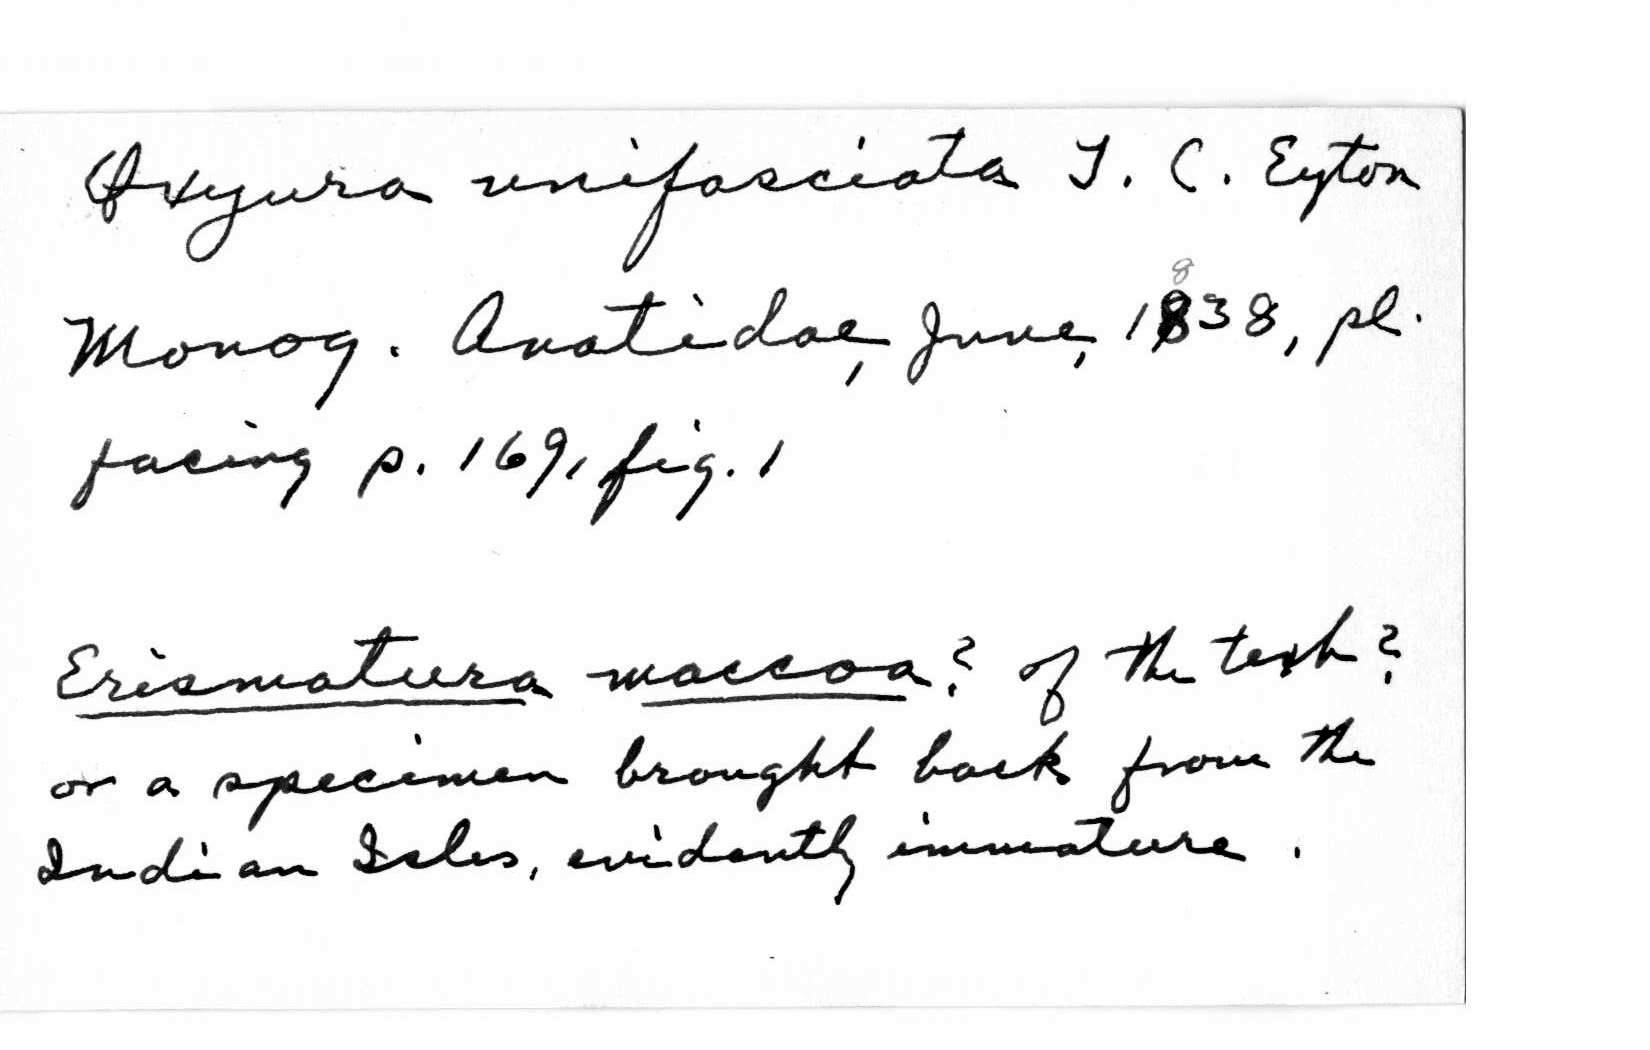 Oxyura unifasciata T. C. Eyton
Monog. Anatidae, June, 1838, pl.
facing p. 169, fig. 1
Erismatura maccoa? of the text?
or a specimen brought back from the
Indian Isles, evidently immature.